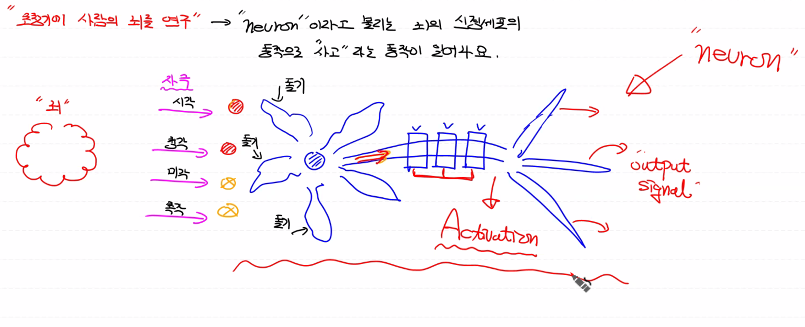 "초창기이 사람의 뇌를 연구" → "neuron"이라고 불리는 뇌의 신경세포의
동작으로 "사고"라는 동작이 일어나요.
"neuron"
"뇌"
자극
시각
청각
미각
촉각
돌기
돌기
돌기
Activation
"output
signal"